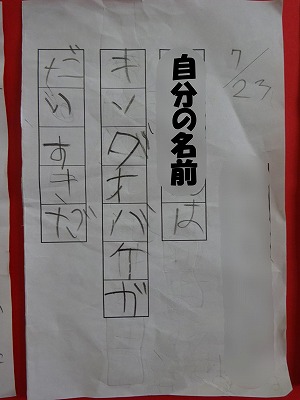 7/23
自分の名前は
キングオバケガ
だいすきだ